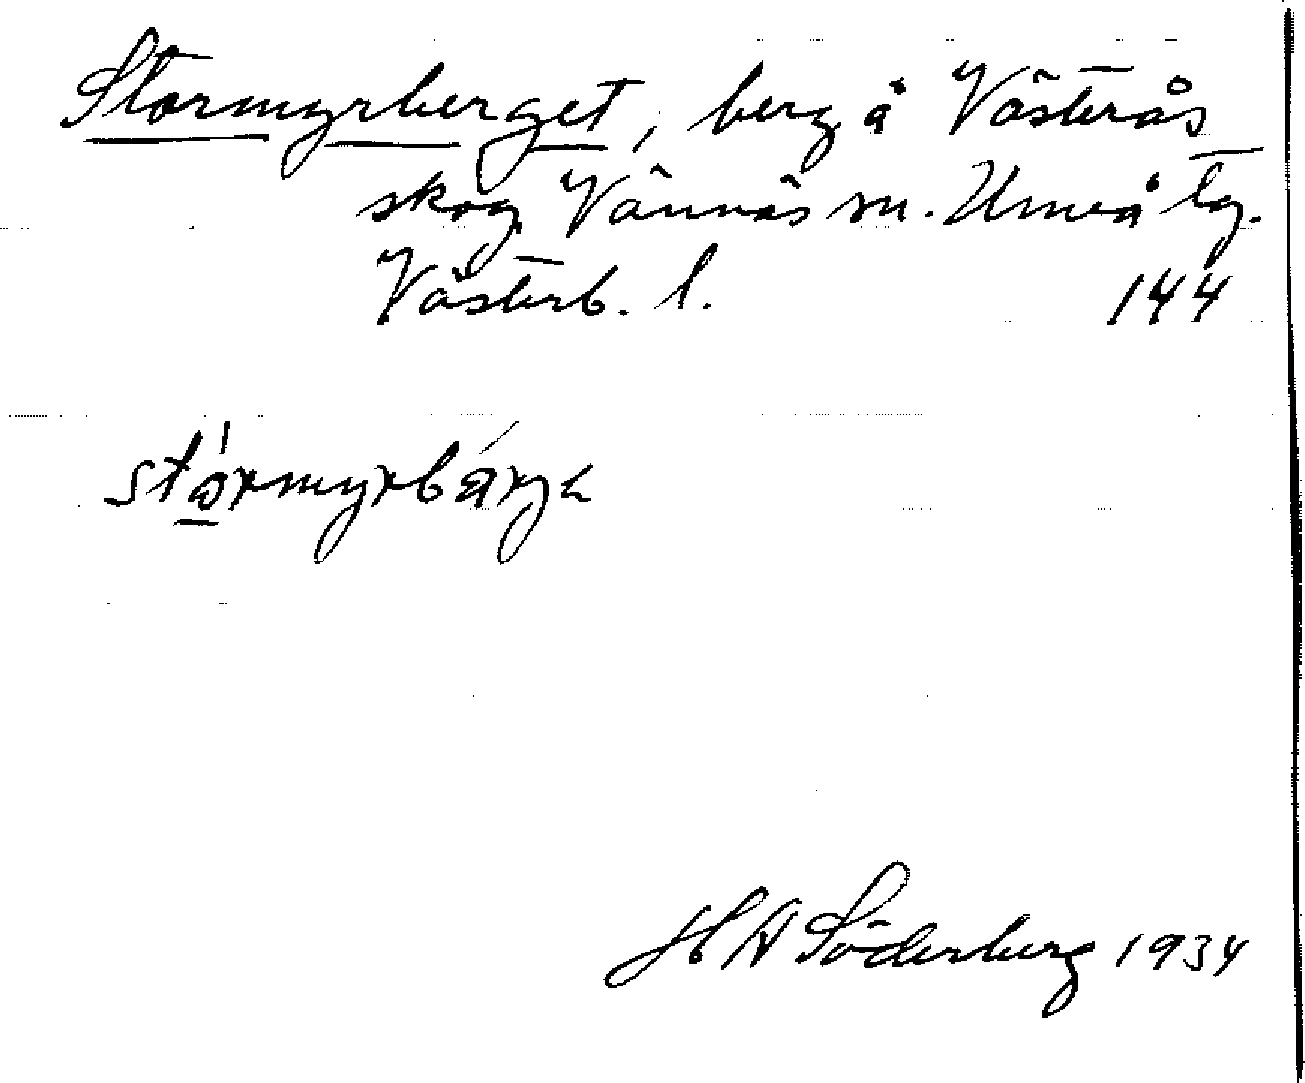 Stormyrberget, berg å Västerås
skog Vännäs sn. Umeå tg.
Västerb. l. 144
stormyrbárjə
H A Söderberg 1934